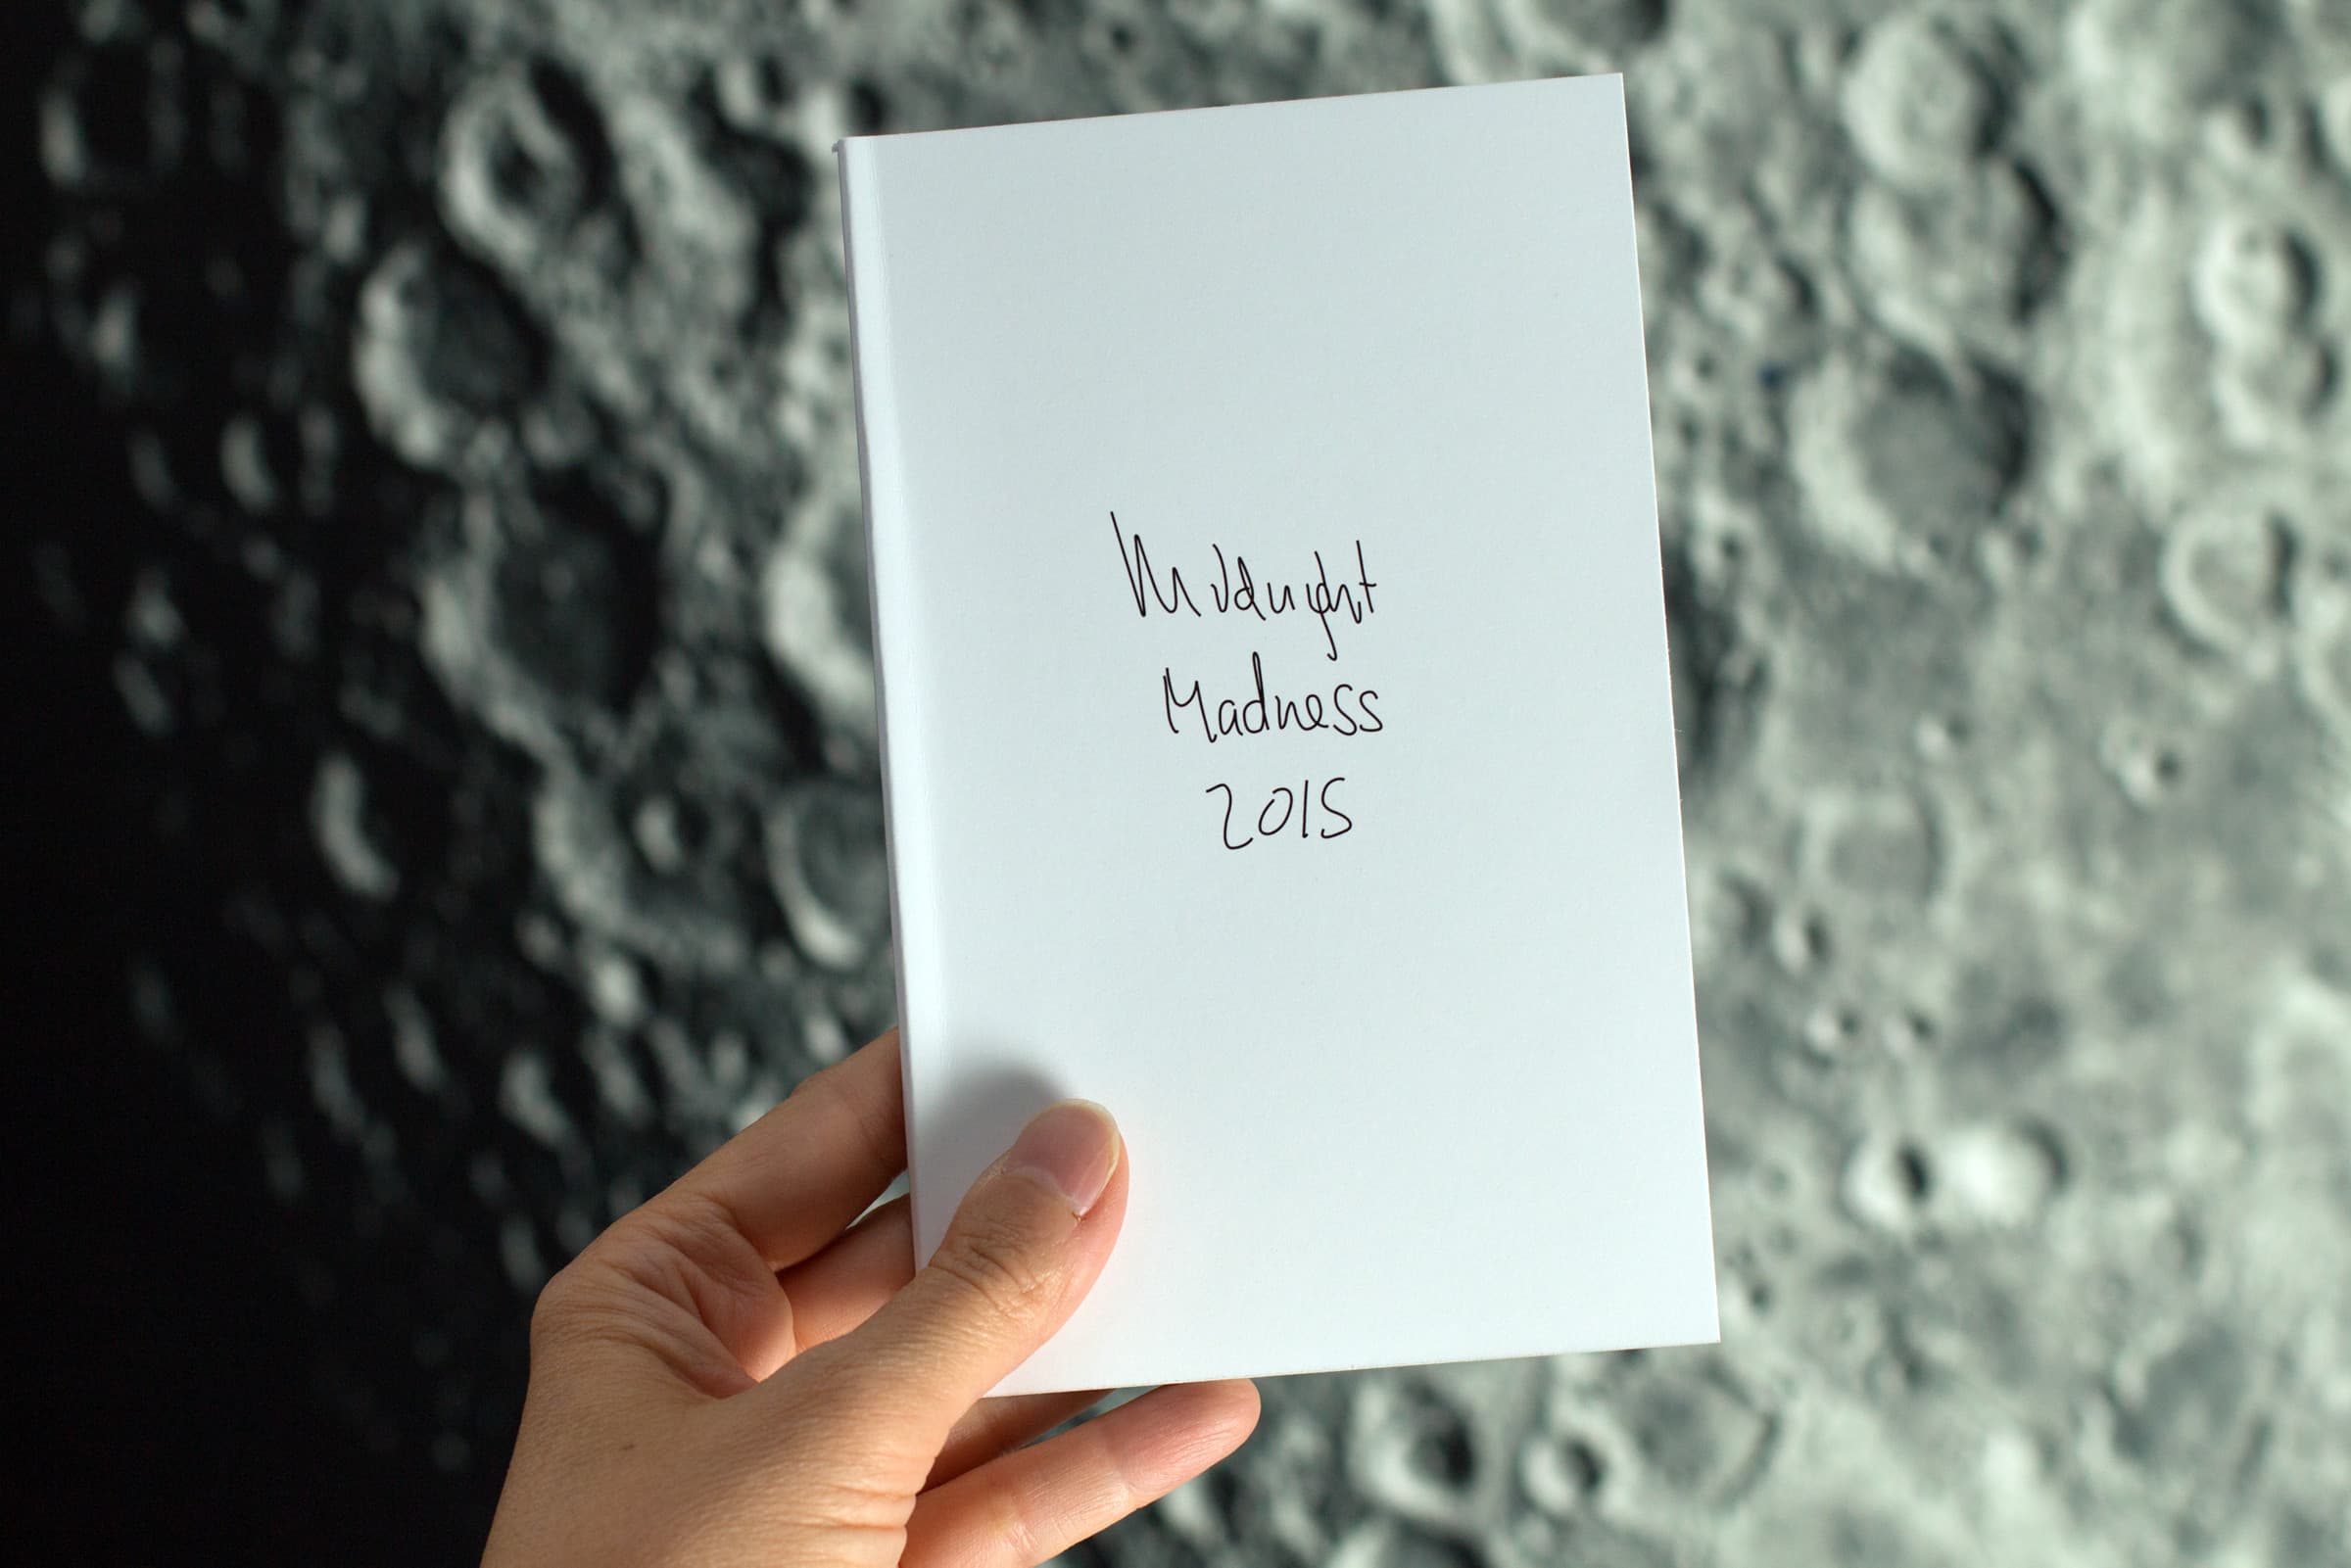 Midnight
Madness
2015